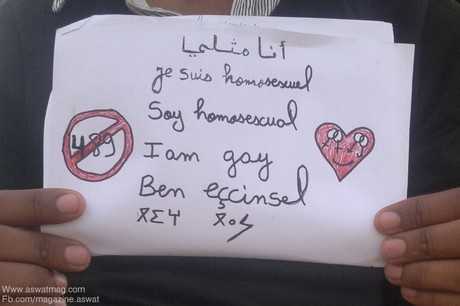 أنا مثلي
Je suis homosexuel
Soy homosexual
489
I am gay
Ben eşcinsel
ⴳⵉⵖ ⴳⴰⵢ
www.aswatmag.com
Fb.com/magazine.aswat